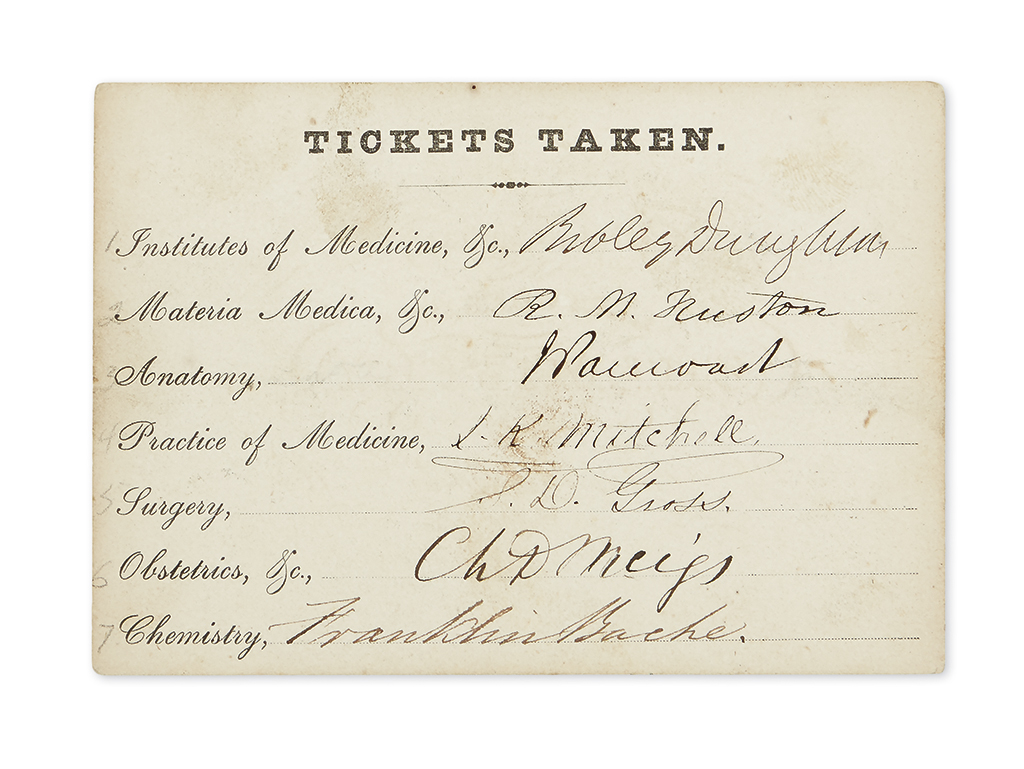 TICKETS TAKEN.
1 Institutes of Medicine, &c., Robley Dunglison
2 Materia Medica, &c., R. M. Huston
3 Anatomy,
4 Practice of Medicine, J. K. Mitchell.
5 Surgery, S. D. Gross.
6 Obstetrics, &c., Ch D Meigs
7 Chemistry, Franklin Bache.